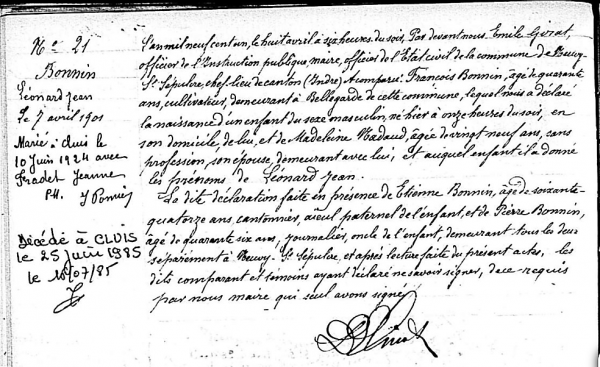 No 21
Bonnin
Léonard Jean
Le 7 avril 1901
Marié à Cluis le
10 Juin 1924 avec
Pradet Jeanne
Décédé à CLUIS
le 25 juin 1985
le 10/07/85
L'an mil neuf cent un, le huit avril à six heures du soir, Par devant nous Emile
officier de l'Instruction publique, maire, officier de l'Etat civil de la commune de Neuvy-
St Sépulcre, chef-lieu de canton (Indre) A comparu: François Bonnin, âgé de quarante
ans, cultivateur, demeurant à Bellegarde de cette commune, lequel nous a déclaré
la naissance d'un enfant du sexe masculin, né hier à onze heures du soir, en
son domicile, de lui, et de Madeleine Nadaud, âgée de vingt neuf ans, sans
profession, son épouse, demeurant avec lui, et auquel enfant il a donné
les prénoms de Léonard Jean.
La dite déclaration faite en présence de Etienne Bonnin, âgé de soixante-
quatorze ans, cantonnier, aïeul paternel de l'enfant, et de Pierre Bonnin,
âgé de quarante six ans, journalier, oncle de l'enfant, demeurant tous les deux
séparément à Neuvy-St Sépulcre, et après lecture faite du présent acte, les
dits comparant et témoins ayant déclaré ne savoir signer, de ce requis
par nous maire qui seul avons signé